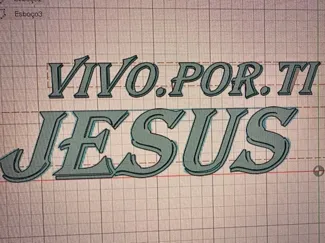 Esboço3
VIVO.POR.TI
JESUS